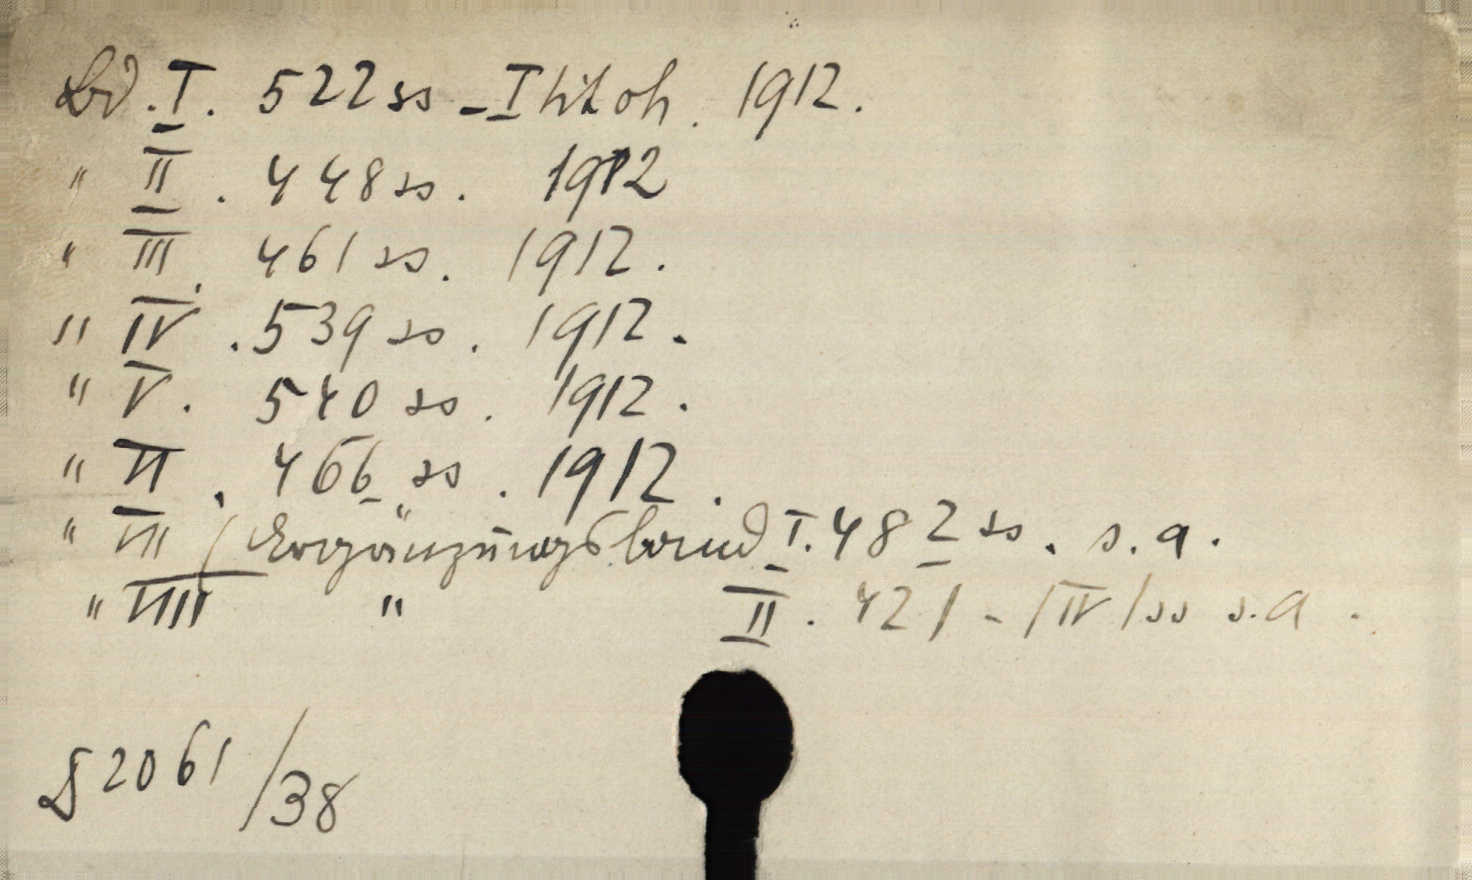 Bd. I. 522 ss - I titoh. 1912.
" II. 448 ss. 1912
" III. 461 ss. 1912.
" IV. 539 ss. 1912.
" V. 540 ss. 1912.
" VI. 466 ss. 1912.
" VII (Ergänzungsband I. 482 ss. s.a.
" VIII " II. 421 - |IV| ss s.a.
2061/38